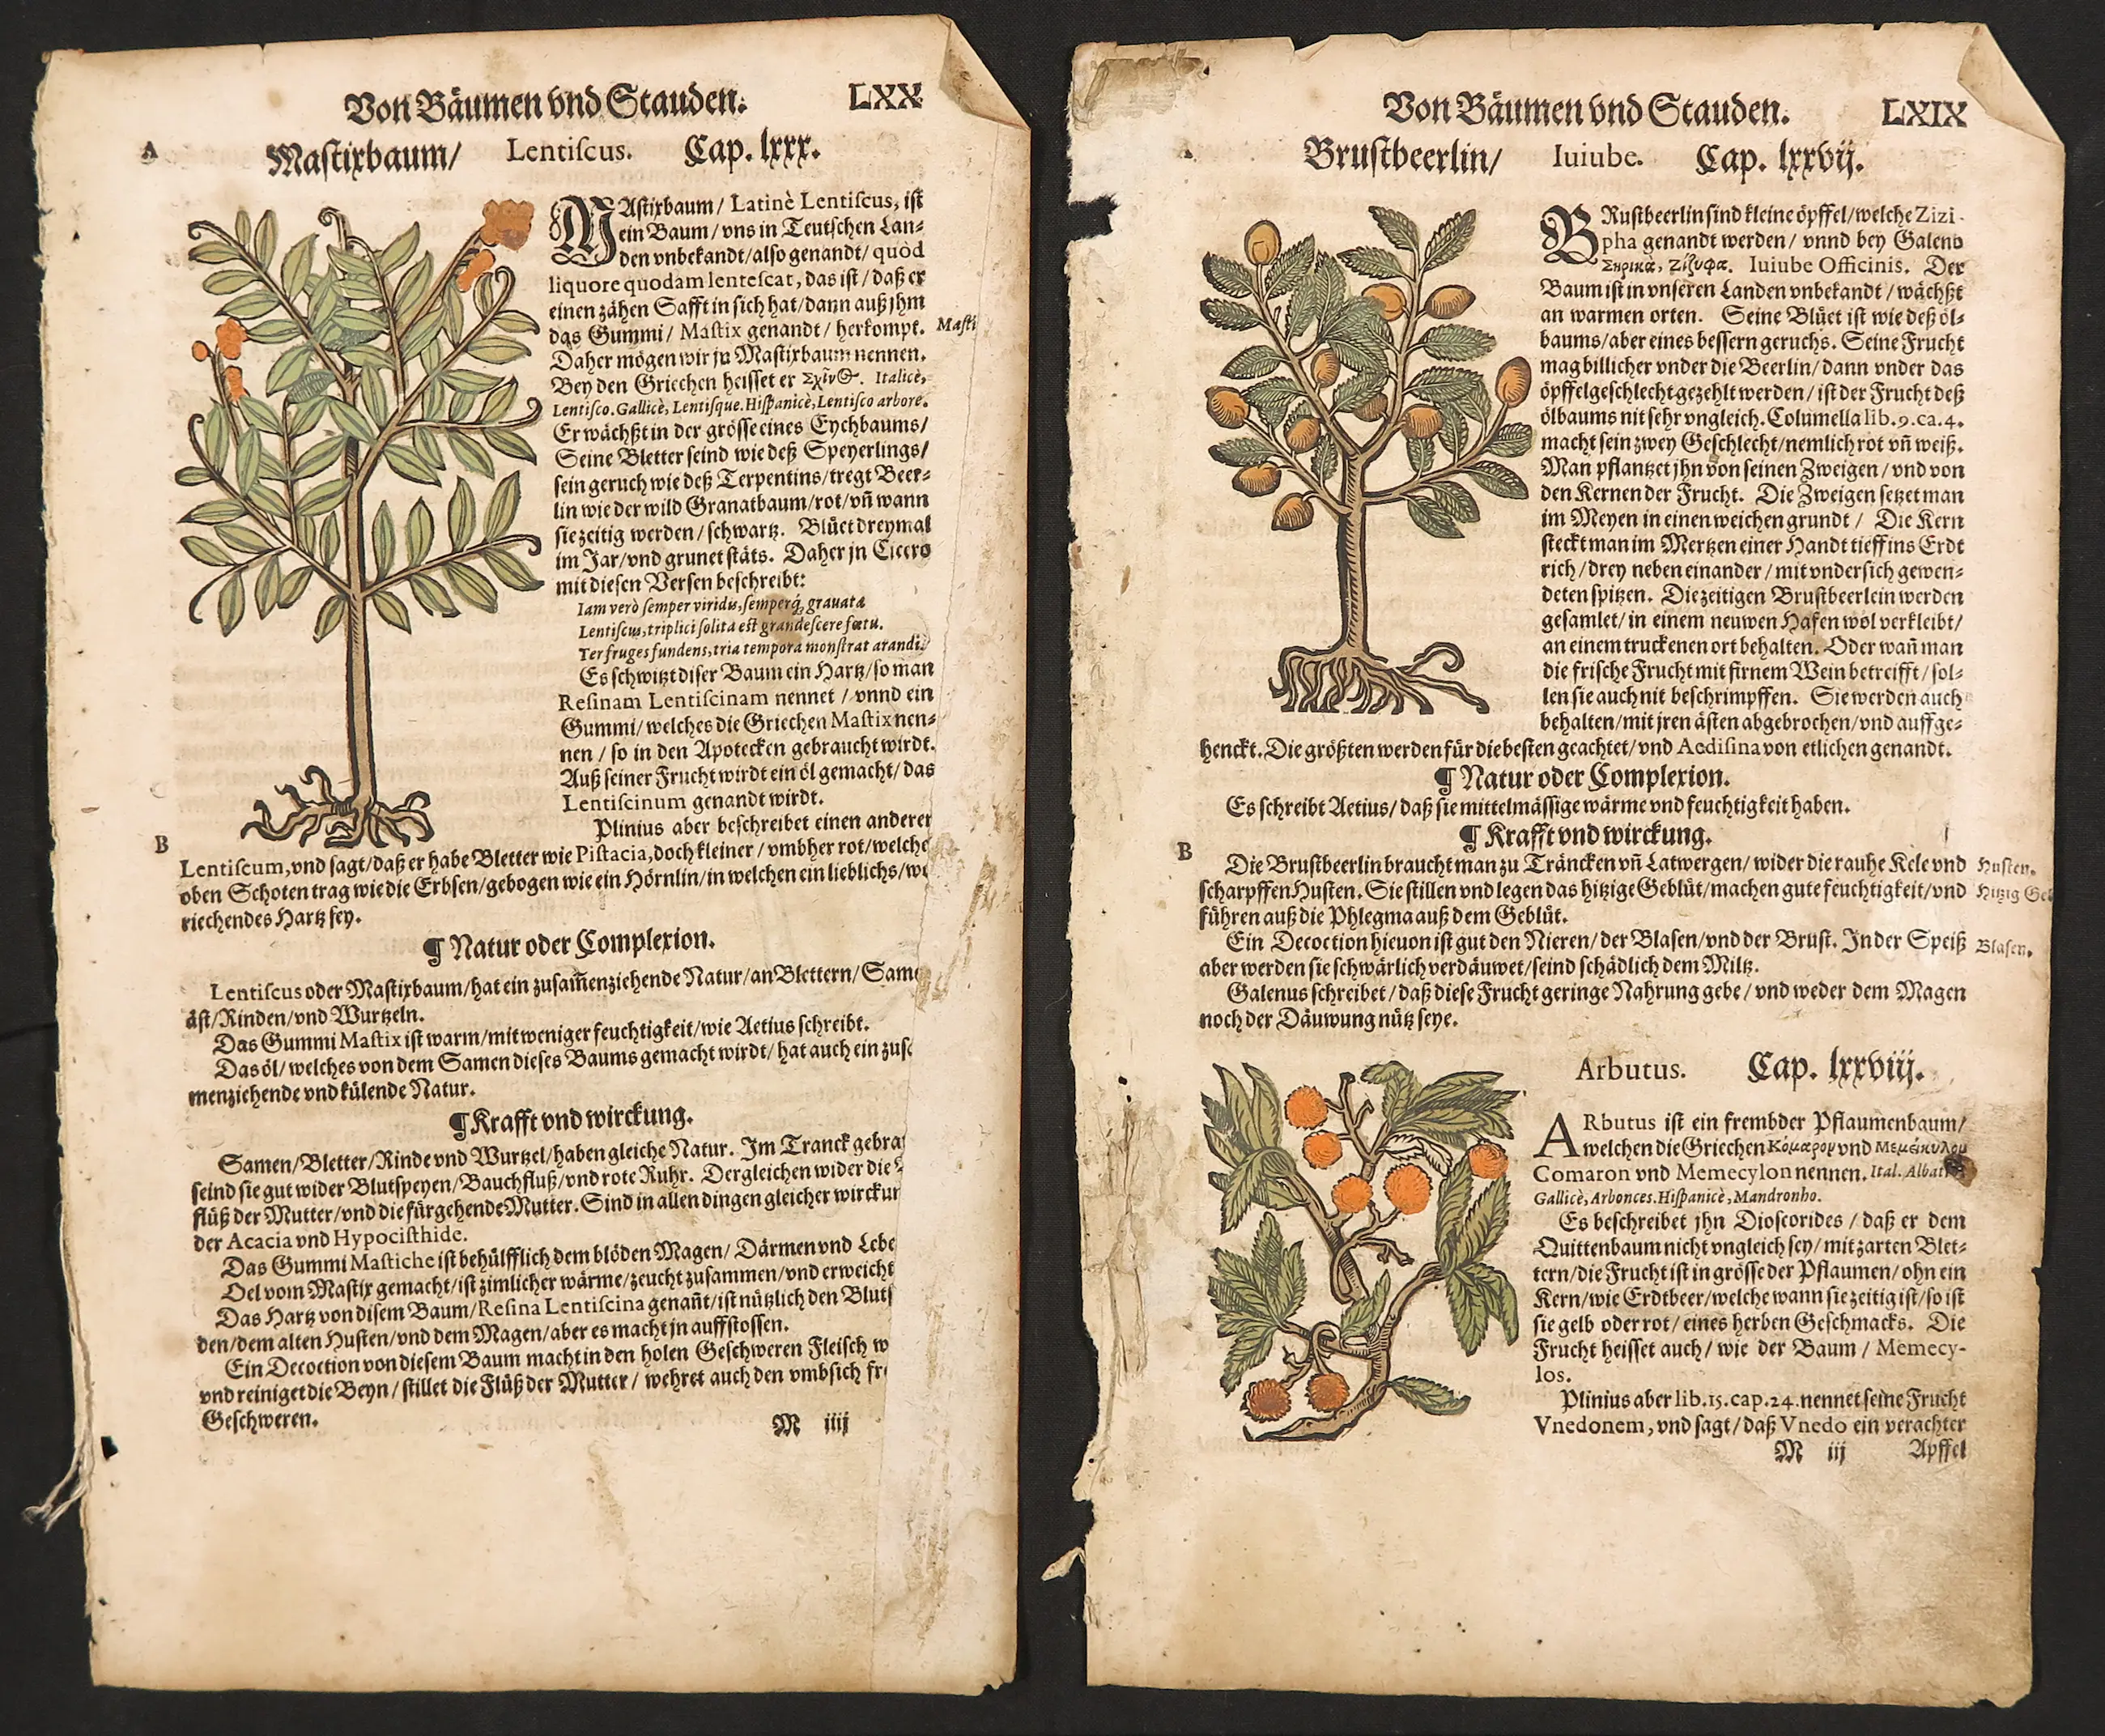 Von Bäumen vnd Stauden. LXX
A
Maſtixbaum/ Lentiſcus. Cap. lxxx.
MAſtixbaum/ Latinè Lentiſcus, iſt
ein Baum/ vns in Teutſchen Lan⸗
den vnbekandt/alſo genandt/ quòd
liquore quodam lenteſcat, das iſt/ daß er
einen zähen Safft in ſich hat/dann auß jhm
das Gummi/ Maſtix genandt/ herkompt. Maſti
Daher mögen wir jn Maſtixbaum nennen.
Bey den Griechen heiſſet er Σχῖνος. Italicè,
Lentiſco. Gallicè, Lentiſque. Hiſpanicè, Lentiſco arbore.
Er wächßt in der gröſſe eines Eychbaums/
Seine Bletter ſeind wie deß Speyerlings/
ſein geruch wie deß Terpentins/tregt Beer⸗
lin wie der wild Granatbaum/rot/vñ wann
ſie zeitig werden/ſchwartz. Blüet dreymal
im Jar/vnd grunet ſtäts. Daher jn Cicero
mit dieſen Verſen beſchreibt:
Iam verò ſemper viridis, ſemperq́; grauata
Lentiſcus, triplici ſolita eſt grandeſcere fœtu.
Ter fruges fundens, tria tempora monſtrat arandi.
Es ſchwitzt diſer Baum ein Hartz/ſo man
Reſinam Lentiſcinam nennet / vnnd ein
Gummi/welches die Griechen Maſtix nen⸗
nen / ſo in den Apotecken gebraucht wirdt.
Auß ſeiner Frucht wirdt ein öl gemacht/das
Lentiſcinum genandt wirdt.
Plinius aber beſchreibet einen anderen
B
Lentiſcum, vnd ſagt/daß er habe Bletter wie Piſtacia, doch kleiner / vmbher rot/welche
oben Schoten trag wie die Erbſen/gebogen wie ein Hörnlin/in welchen ein lieblichs/
riechendes Hartz ſey.
¶ Natur oder Complexion.
Lentiſcus oder Maſtixbaum/hat ein zuſam̃enziehende Natur/an Blettern/Same
äſt/Rinden/vnd Wurtzeln.
Das Gummi Maſtix iſt warm/mit weniger feuchtigkeit/wie Aetius ſchreibt.
Das öl/welches von dem Samen dieſes Baums gemacht wirdt/ hat auch ein zuſ
menziehende vnd külende Natur.
¶ Krafft vnd wirckung.
Samen/Bletter/Rinde vnd Wurtzel/haben gleiche Natur. Im Tranck gebra
ſeind ſie gut wider Blutſpeyen/Bauchfluß/vnd rote Ruhr. Dergleichen wider die
flüß der Mutter/vnd die fürgehende Mutter. Sind in allen dingen gleicher wirckun
der Acacia vnd Hypociſthide.
Das Gummi Maſtiche iſt behülfflich dem blöden Magen/ Därmen vnd Lebe
Oel vom Maſtix gemacht/iſt zimlicher wärme/zeucht zuſammen/vnd erweicht
Das Hartz von diſem Baum/Reſina Lentiſcina genañt/iſt nützlich den Blutſ
den/dem alten Huſten/vnd dem Magen/aber es macht jn auffſtoſſen.
Ein Decoction von dieſem Baum macht in den holen Geſchweren Fleiſch w
vnd reiniget die Beyn/ſtillet die Flüß der Mutter/ wehret auch den vmbſich fre
Geſchweren.
M iiij
Von Bäumen vnd Stauden. LXIX
Bruſtbeerlin/ Iuiube. Cap. lxxvij.
BRuſtbeerlin ſind kleine öpffel/welche Zizi-
pha genandt werden/ vnnd bey Galeno
Σηρικὰ, Ζίζυφα. Iuiube Officinis. Der
Baum iſt in vnſeren Landen vnbekandt / wächßt
an warmen orten. Seine Blüet iſt wie deß öl⸗
baums/aber eines beſſern geruchs. Seine Frucht
mag billicher vnder die Beerlin/dann vnder das
öpffelgeſchlecht gezehlt werden/iſt der Frucht deß
ölbaums nit ſehr vngleich. Columella lib. 9. ca. 4.
macht ſein zwey Geſchlecht/nemlich rot vñ weiß.
Man pflantzet jhn von ſeinen Zweigen/vnd von
den Kernen der Frucht. Die Zweigen ſetzet man
im Meyen in einen weichen grundt / Die Kern
ſteckt man im Mertzen einer Handt tieff ins Erdt
rich/drey neben einander/mit vnderſich gewen⸗
deten ſpitzen. Die zeitigen Bruſtbeerlein werden
geſamlet/in einem neuwen Hafen wol verkleibt/
an einem truckenen ort behalten. Oder wañ man
die friſche Frucht mit firnem Wein betreifft/ſol⸗
len ſie auch nit beſchrimpffen. Sie werden auch
behalten/mit jren äſten abgebrochen/vnd auffge⸗
henckt. Die größten werden für die beſten geachtet/vnd Aediſina von etlichen genandt.
¶ Natur oder Complexion.
Es ſchreibt Aetius/daß ſie mittelmäſſige wärme vnd feuchtigkeit haben.
¶ Krafft vnd wirckung.
B
Die Bruſtbeerlin braucht man zu Träncken vñ Latwergen/ wider die rauhe Kele vnd Huſten.
ſcharpffen Huſten. Sie ſtillen vnd legen das hitzige Geblüt/machen gute feuchtigkeit/vnd Hitzig Geb
führen auß die Phlegma auß dem Geblüt.
Ein Decoction hieuon iſt gut den Nieren/der Blaſen/vnd der Bruſt. In der Speiß Blaſen.
aber werden ſie ſchwärlich verdäuwet/ſeind ſchädlich dem Miltz.
Galenus ſchreibet/daß dieſe Frucht geringe Nahrung gebe/ vnd weder dem Magen
noch der Däuwung nütz ſeye.
Arbutus. Cap. lxxviij.
ARbutus iſt ein frembder Pflaumenbaum/
welchen die Griechen Κόμαρον vnd Μεμέκυλον
Comaron vnd Memecylon nennen. Ital. Albat
Gallicè, Arbonces. Hiſpanicè, Mandronho.
Es beſchreibet jhn Dioſcorides / daß er dem
Quittenbaum nicht vngleich ſey/mit zarten Blet⸗
tern/die Frucht iſt in gröſſe der Pflaumen/ohn ein
Kern/wie Erdtbeer/welche wann ſie zeitig iſt/ſo iſt
ſie gelb oder rot/ eines herben Geſchmacks. Die
Frucht heiſſet auch/ wie der Baum / Memecy-
los.
Plinius aber lib. 15. cap. 24. nennet ſeine Frucht
Vnedonem, vnd ſagt/daß Vnedo ein verachter
M iij Apffel